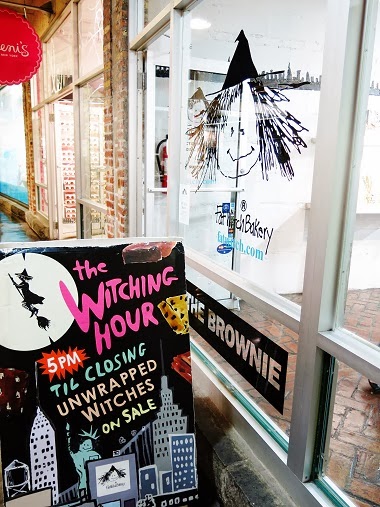 the
WITCHING
HOUR
5PM
TIL CLOSING
UNWRAPPED
WITCHES
ON SALE
Fat Witch Bakery
®
fatwitch.com
THE BROWNIE